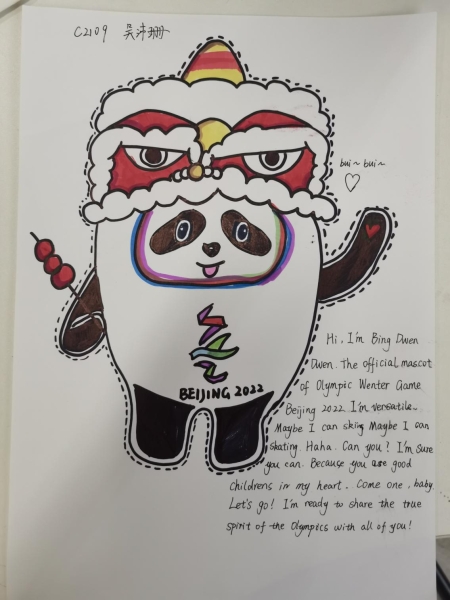 C2109 吴沛珊
bui~ bui~
BEIJING 2022
Hi, I'm Bing Dwen
Dwen. The official mascot
of Olympic Wenter Game
Beijing 2022. I'm versatile~
Maybe I can skiing Maybe I can
skating. Haha. Can you? I'm sure
you can. Because you are good
childrens in my heart.. Come one, baby
Let's go! I'm ready to share the true
spirit of the Olympics with all of you!